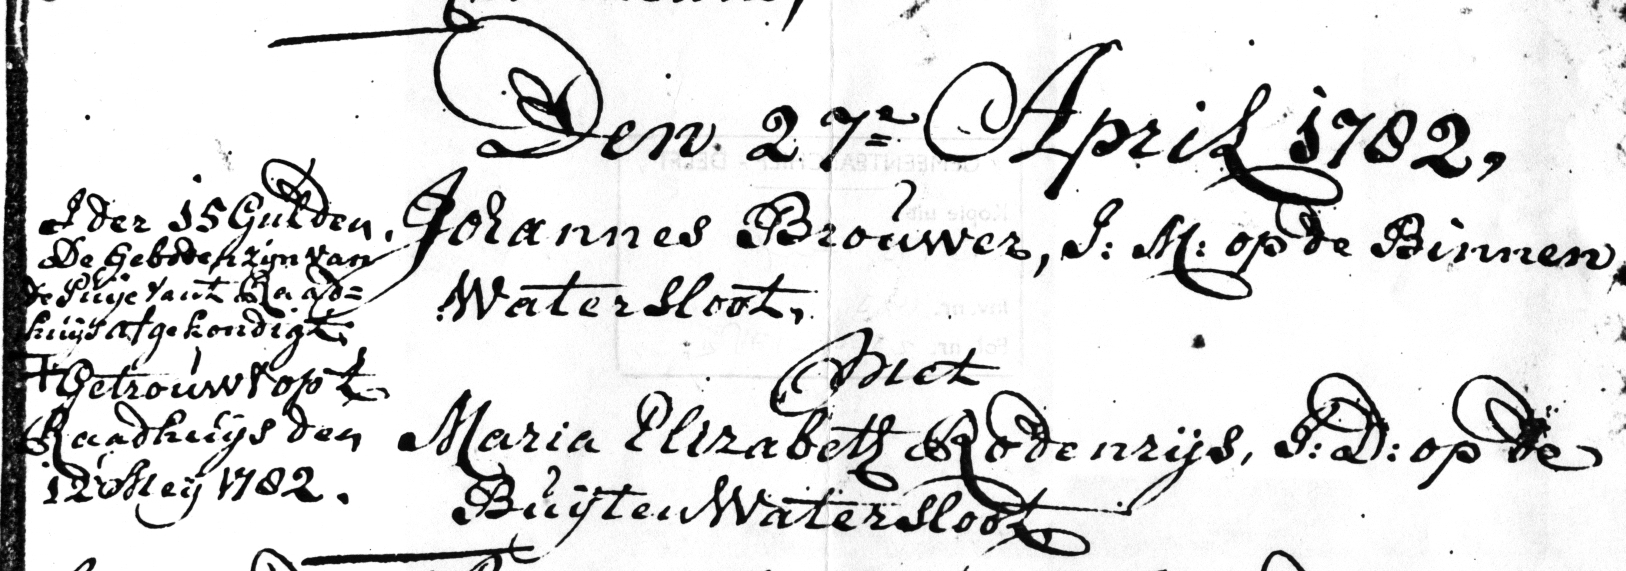 Den 27e April 1782,
Ider 15 Gulden.
De Geboden zijn van
de Puije vant Raad=
huijs afgekondigt.
Getrouwt opt
Raadhuijs den
12 Meij 1782.
Johannes Brouwer, J: M: op de Binnen
Watersloot,
Met
Maria Elizabeth Rodenrijs, J: D: op de
Buijten Watersloot,